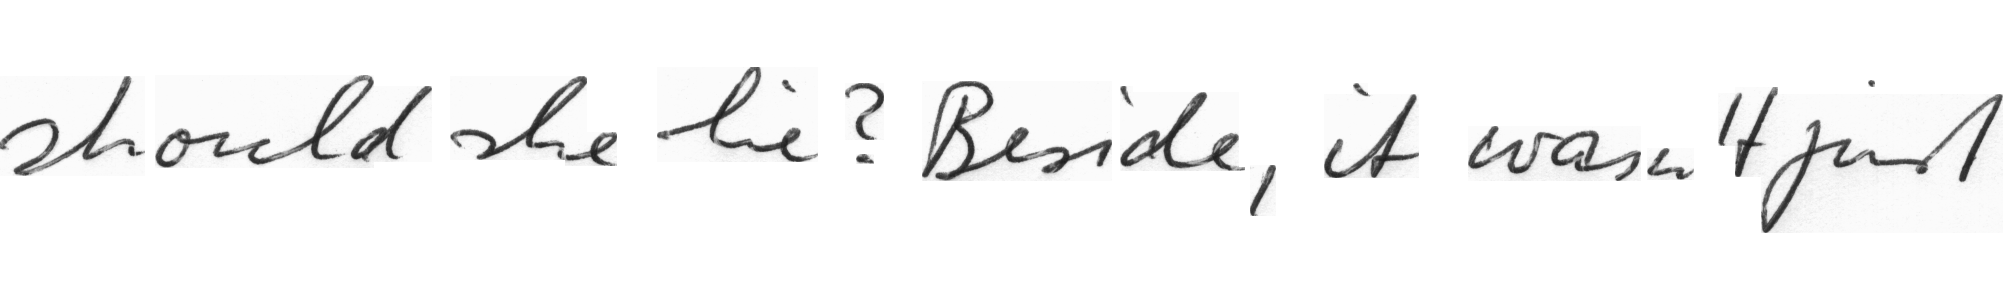 should she lie? Beside, it wasn't just